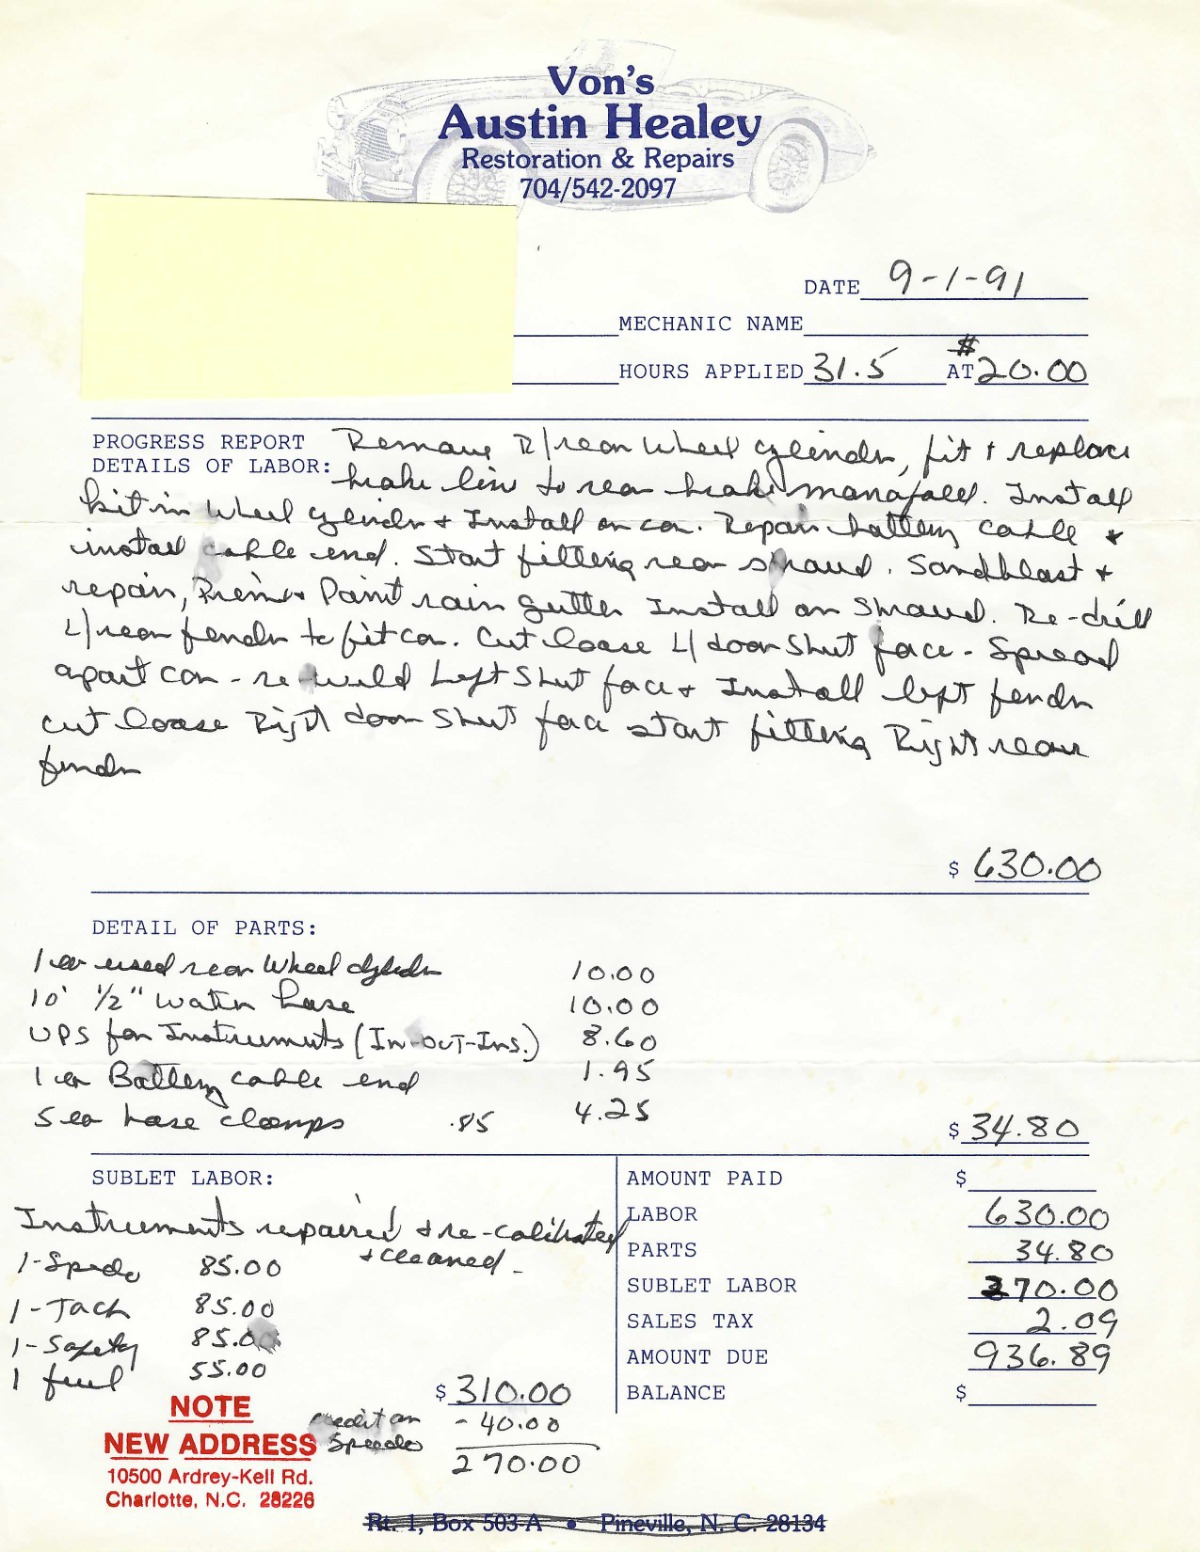 Von's
Austin Healey
Restoration & Repairs
704/542-2097
DATE 9-1-91
MECHANIC NAME
HOURS APPLIED 31.5 AT $20.00
PROGRESS REPORT
DETAILS OF LABOR:
Remove R/rear wheel cylinder, fit + replace
brake line to rear brake manafold. Install
kit in wheel cylinder + Install on car. Repair battery cable +
install cable end. Start fitting rear shroud. Sandblast +
repair, Prime + Paint rain gutter Install on Shroud. Re-drill
L/rear fender to fit car. Cut loose L/door Shut face - Spread
apart car - re-build Left Shut face + Install left fender
cut loose Right door Shut face start fitting Right rear
fender
$ 630.00
DETAIL OF PARTS:
1 ea used rear Wheel cylinder 10.00
10' 1/2" water hose 10.00
UPS for Instruments (In-OUT-Ins.) 8.60
1 ea Battery cable end 1.95
5 ea hose clamps .85 4.25
$ 34.80
SUBLET LABOR:
Instruments repaired + re-calibrated
+ cleaned -
1-Speedo 85.00
1-Tach 85.00
1-Safety 85.00
1 fuel 55.00
$ 310.00
credit on Speedo - 40.00
270.00
AMOUNT PAID $
LABOR 630.00
PARTS 34.80
SUBLET LABOR 270.00
SALES TAX 2.09
AMOUNT DUE 936.89
BALANCE $
NOTE
NEW ADDRESS
10500 Ardrey-Kell Rd.
Charlotte, N.C. 28226
Rt. 1, Box 503-A • Pineville, N. C. 28134